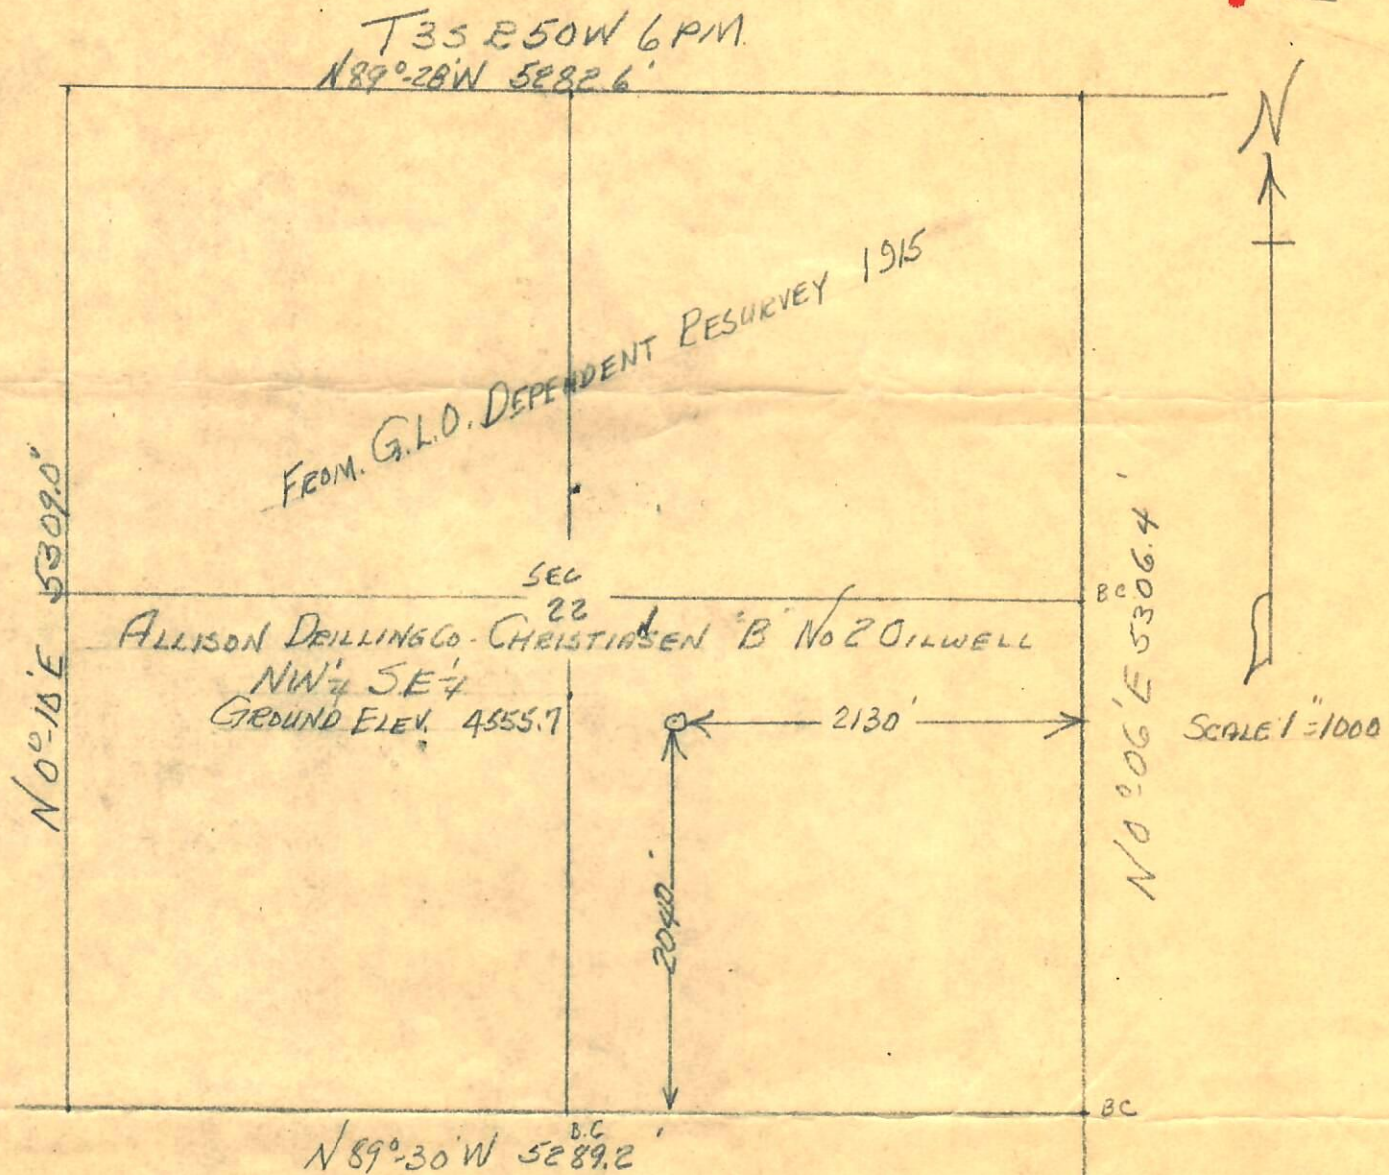 T3S R50W 6PM
N89°-28'W 5282.6'
N
FROM. G.L.O. DEPENDENT RESURVEY 1915
N0°-10'E 5309.0"
SEC
22
BC
ALLISON DRILLING CO - CHRISTIANSEN "B" No 2 OILWELL
NW¼ S.E¼
GROUND ELEV. 4555.7
2130'
N0°06'E 5306.4'
SCALE 1"=1000
2040'
BC
B.C
N89°-30'W 5289.2'